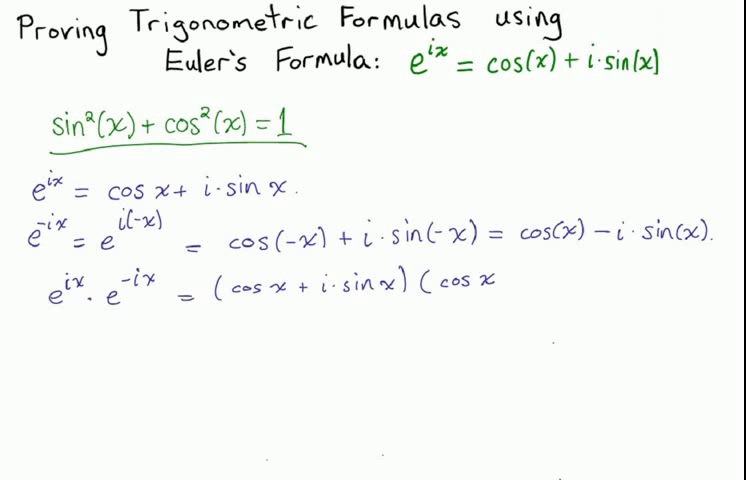 Proving Trigonometric Formulas using
Euler's Formula: e^{ix} = cos(x) + i·sin(x)
sin²(x) + cos²(x) = 1
e^{ix} = cos x + i·sin x.
e^{-ix} = e^{i(-x)} = cos(-x) + i·sin(-x) = cos(x) - i·sin(x).
e^{ix} · e^{-ix} = (cos x + i·sin x) (cos x